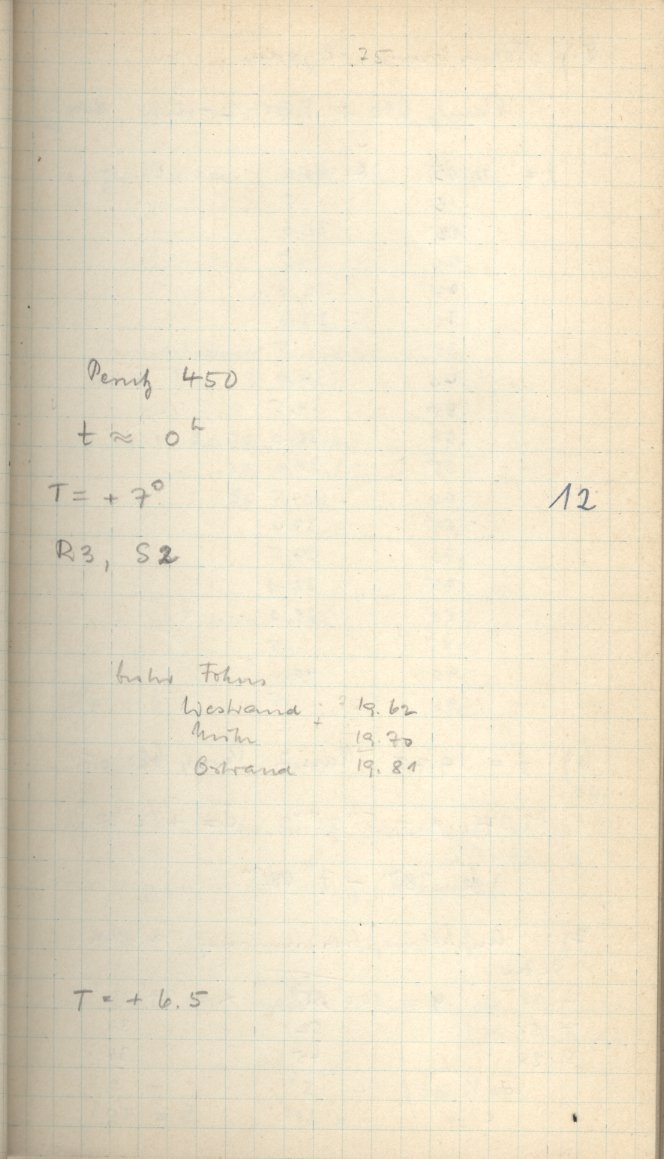 75
Pernitz 450
t ≈ 0ʰ
T = + 7°
12
R3, S2
bester Fokus
Westrand 19.62
Mitte 19.70
Ostrand 19.81
T = + 6.5